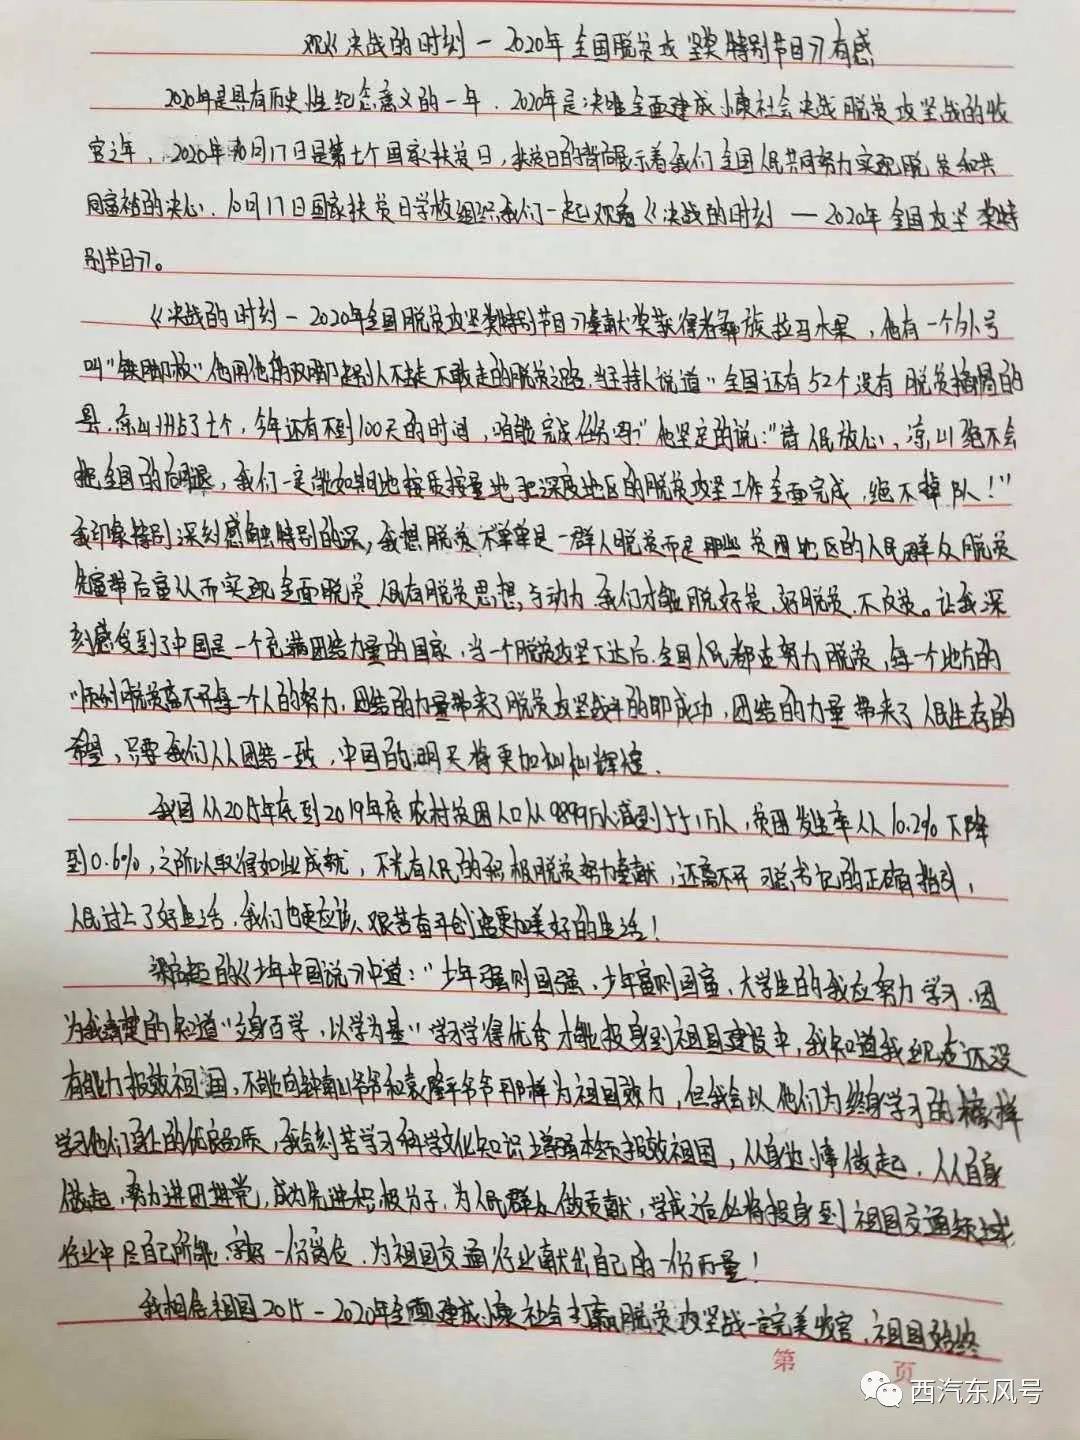 观《决战的时刻—2020年全国脱贫攻坚奖特别节目》有感
2020年是具有历史性纪念意义的一年，2020年是决唯全面建成小康社会决战脱贫攻坚战的收
官之年，2020年10月17日是第七个国家扶贫日，扶贫日的背后展示着我们全国人民共同努力实现脱贫和共
同富裕的决心，10月17日国家扶贫日学校组织我们一起观看《决战的时刻—2020年全国攻坚奖特
别节目》。
《决战的时刻—2020年全国脱贫攻坚奖特别节目》奉献奖获得者彝族拉马水果，他有一个外号
叫"铁脚板"他用他的双脚走别人不走不敢走的脱贫之路，当主持人说道"全国还有52个没有脱贫摘帽的
县，凉山州占了七个，今年还有不到100天的时间，咱能完成任务吗"他坚定的说："请人民放心，凉山绝不会
拖全国的后腿，我们一定能如期地按质按量地把深度地区的脱贫攻坚工作全面完成，绝不掉队！"
我印象特别深刻感触特别的深，我想脱贫不单单是一群人脱贫而是那些贫困地区的人民群众脱贫
先富带后富从而实现全面脱贫，只有脱贫思想，与动力，我们才能脱好贫、好脱贫、不反贫。让我深
刻感受到了中国是一个充满团结力量的国家，当一个脱贫攻坚下达后，全国人民都在努力脱贫，每一个地方的
顺利脱贫离不开每一个人的努力，团结的力量带来了脱贫攻坚战斗的即成功，团结的力量带来了人民生存的
希望，只要我们人人团结一致，中国的明天将更加灿灿辉煌．
我国从20年底到2019年底农村贫困人口从9899万人减到551万人，贫困发生率从10.2%下降
到0.6%，之所以取得如此成就，不光有人民的积极脱贫努力奉献，还离不开习总书记的正确指引，
人民过上了好生活，我们也更应该、艰苦奋斗创造更加美好的生活！
梁启超的《少年中国说》中道："少年强则国强，少年富则国富，大学生的我应努力学习，因
为我清楚的知道"立身百学，以学为基"学习学得优秀才能投身到祖国建设中，我知道我现在还没
有能力报效祖国，不能向钟南山爷爷和袁隆平爷爷那样为祖国效力，但我会以他们为终身学习的榜样
学习他们身上的优良品质，我会刻苦学习科学文化知识增强本领报效祖国，从身边小事做起，从自身
做起，努力进团进党，成为先进积极分子，为人民群众做贡献，学成之后必将投身到祖国交通领域
行业中尽自己所能，守好一份岗位，为祖国交通行业献出自己的一份力量！
我相信祖国2015-2020年全面建成小康社会打赢脱贫攻坚战一定完美收官，祖国始终
第 页
西汽东风号